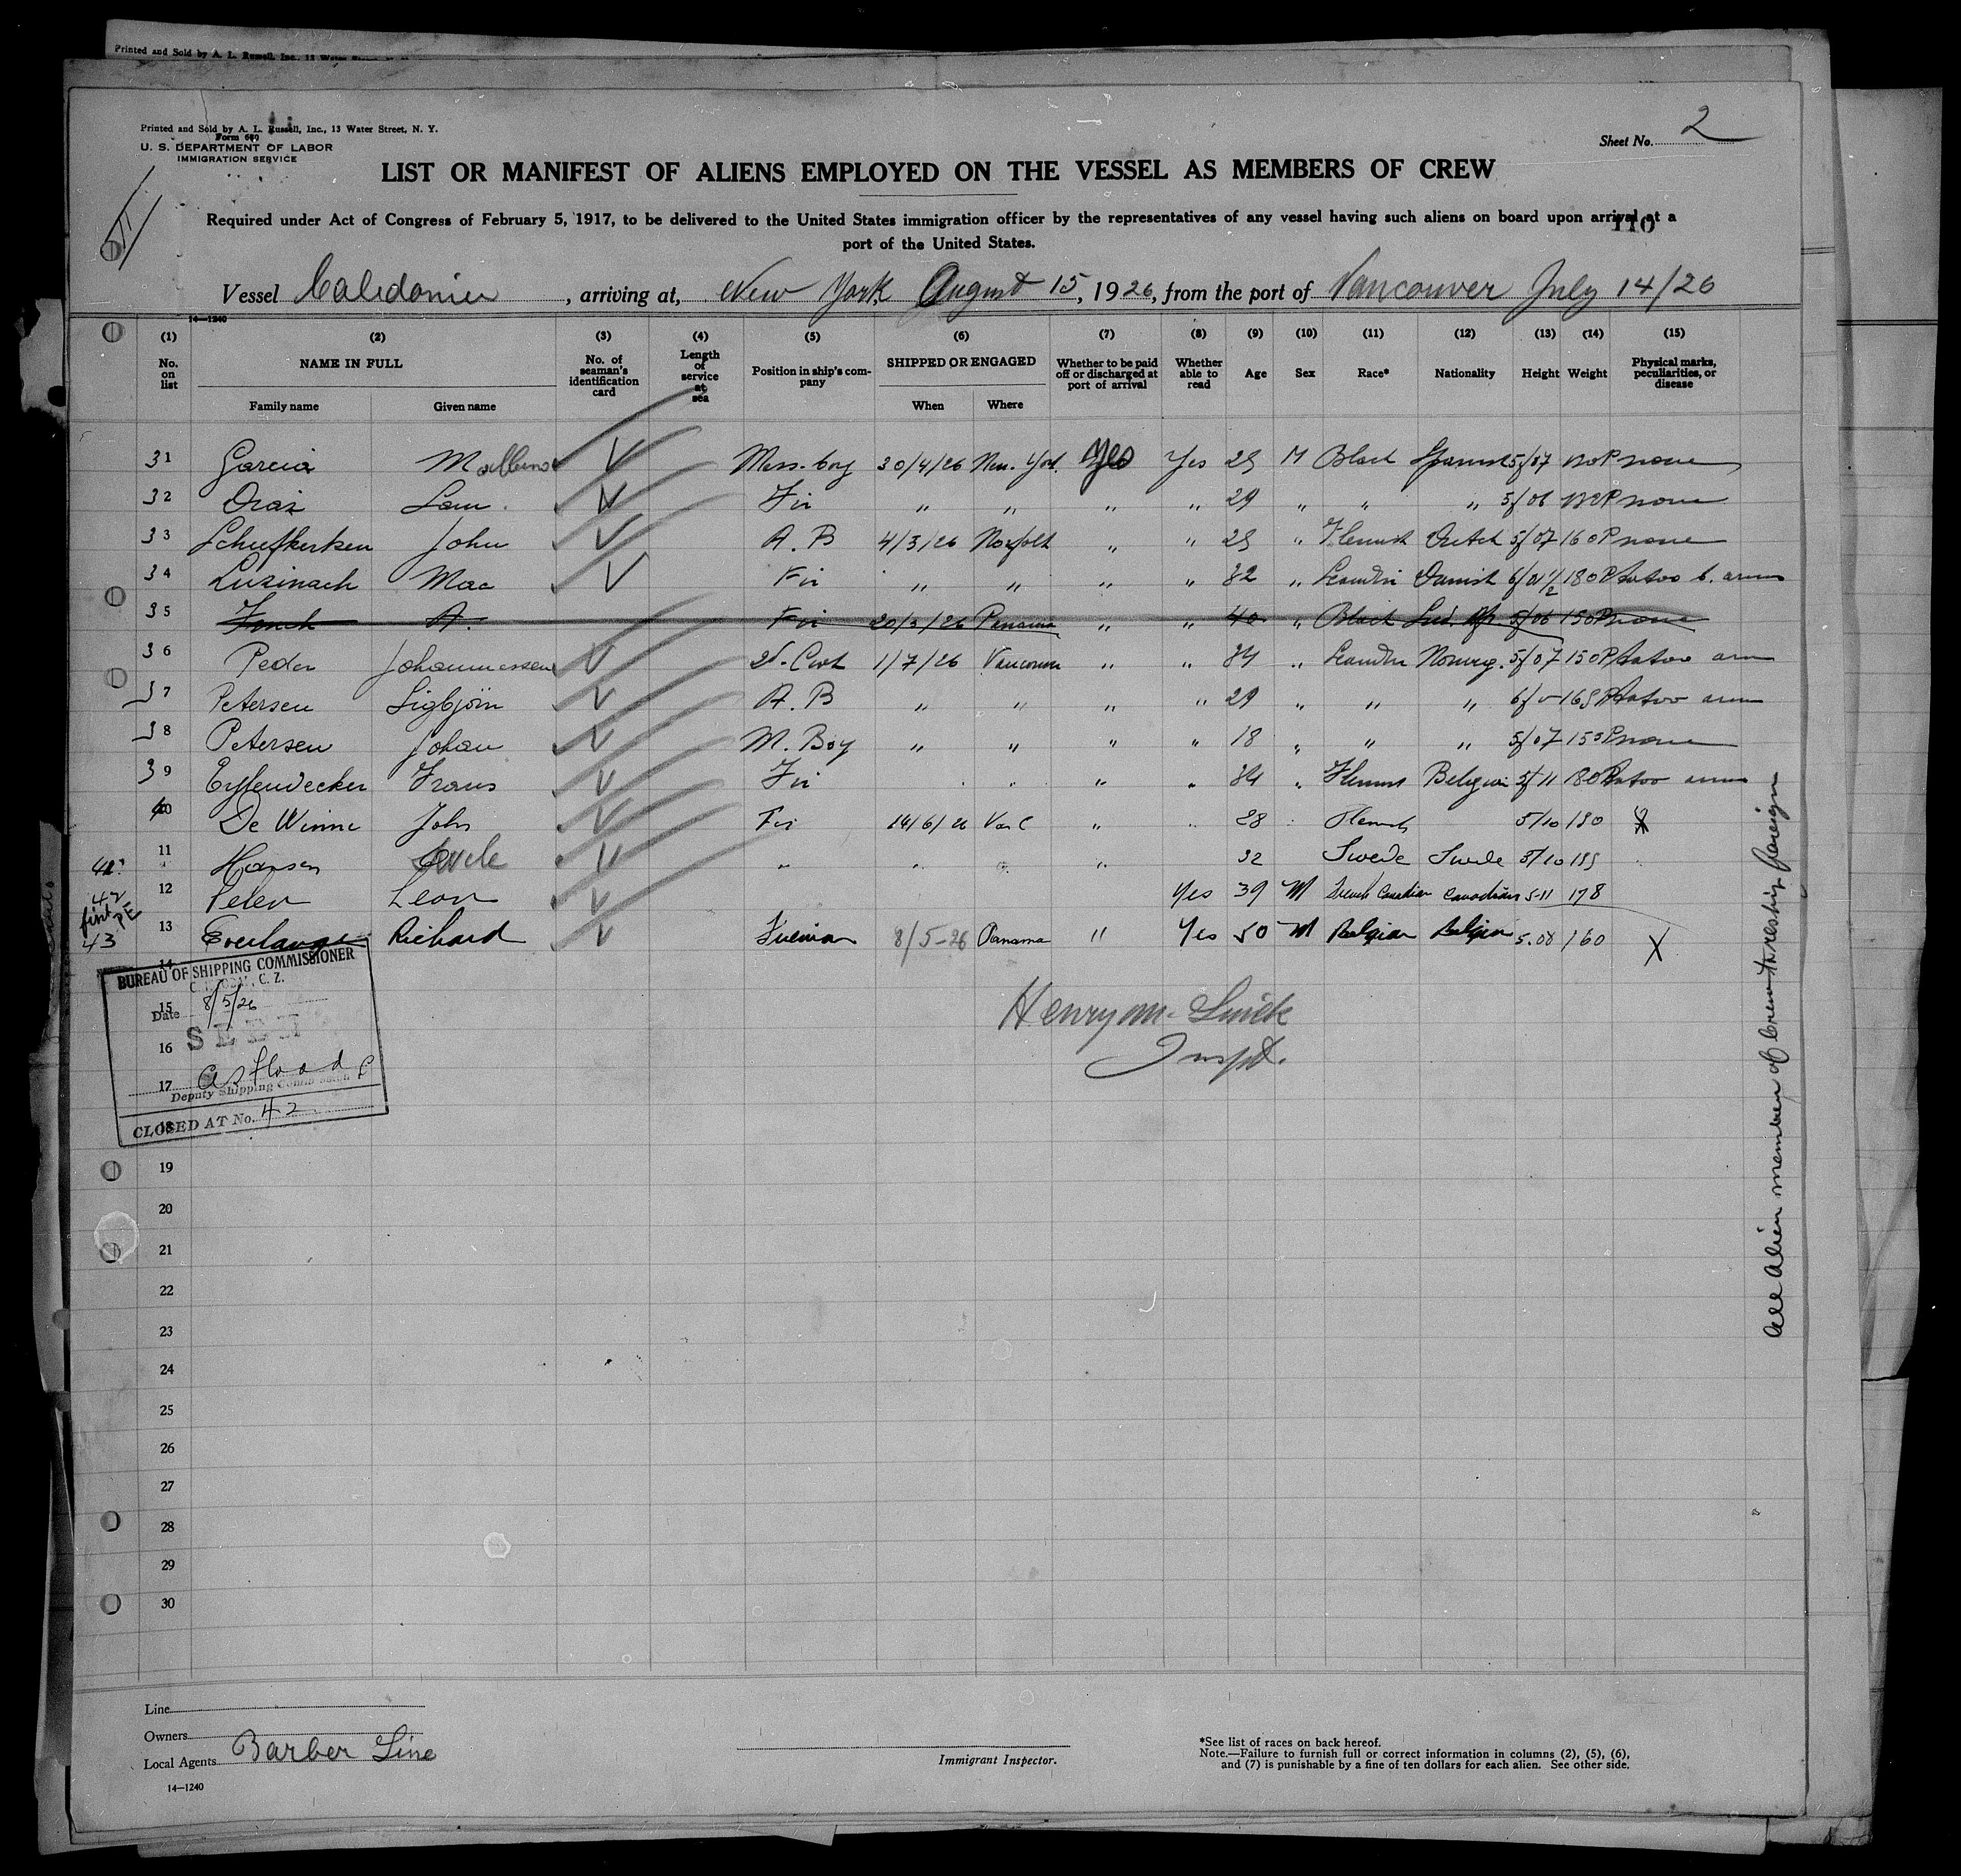 Printed and Sold by A. L. Russell, Inc., 13 Water
Printed and Sold by A. L. Russell, Inc., 13 Water Street, N. Y.
Form 680
U. S. DEPARTMENT OF LABOR
IMMIGRATION SERVICE
Sheet No. 2
LIST OR MANIFEST OF ALIENS EMPLOYED ON THE VESSEL AS MEMBERS OF CREW
Required under Act of Congress of February 5, 1917, to be delivered to the United States immigration officer by the representatives of any vessel having such aliens on board upon arrival at a
port of the United States.
110
Vessel Caledonier, arriving at, New York August 15, 1926, from the port of Vancouver July 14/26
14—1240
(1) (2) (3) (4) (5) (6) (7) (8) (9) (10) (11) (12) (13) (14) (15)
No. on list NAME IN FULL No. of seaman's identification card Length of service at sea Position in ship's company SHIPPED OR ENGAGED Whether to be paid off or discharged at port of arrival Whether able to read Age Sex Race* Nationality Height Weight Physical marks, peculiarities, or disease
Family name Given name When Where
31 Garcia Mess-boy 30/4/26 New York Yes Yes 25 M Black Spanish 5/07 none
32 Diaz Sam Fir " " " " 29 " " " 5/06 none
33 John A. B 4/3/26 Norfolk " " 25 " Flemish Dutch 5/07 160P none
34 Mac Fir " " " " 32 " Scandin Danish 6/01 1/2 180P tatoo b. arms
35 A. Fir 20/3/26 Panama " " 40 " Black 5/06 150P none
36 Peder Johannessen 1/7/26 Vancouver " " 34 " Scandin Norweg. 5/07 150P tatoo arm
37 Petersen Sigbjörn A. B " " " " 29 " " " 6/0 165P tatoo arm
38 Petersen Johan M. Boy " " " " 18 " " " 5/07 153P none
39 Eyffendecker Frans Fir " " 34 " Flemish Belgian 5/11 180P tatoo arms
40 De Winne John Fir 14/6/26 Vanc " " 28 Flemish 5/10 190
41 11 Hansen " " " " 32 Swede Swede 5/10 195
42 12 Peler Leon Yes 39 M French Canadian Canadian 5-11 178
first PE
43 13 Everlange Richard Fireman 8/5-26 Panama " Yes 50 M Belgian Belgian 5.08 160 X
14
BUREAU OF SHIPPING COMMISSIONER
C. Z.
15
Date 8/5/26
SEEN
16
17
Deputy Shipping Commissioner
CLOSED AT No. 42
18
Henry M.
Inspt.
19
20
21
22
23
24
25
26
27
28
29
30
All Alien members of Crew this ship foreign
Line
Owners
Local Agents Barber Line
14—1240
Immigrant Inspector.
*See list of races on back hereof.
Note.—Failure to furnish full or correct information in columns (2), (5), (6),
and (7) is punishable by a fine of ten dollars for each alien. See other side.